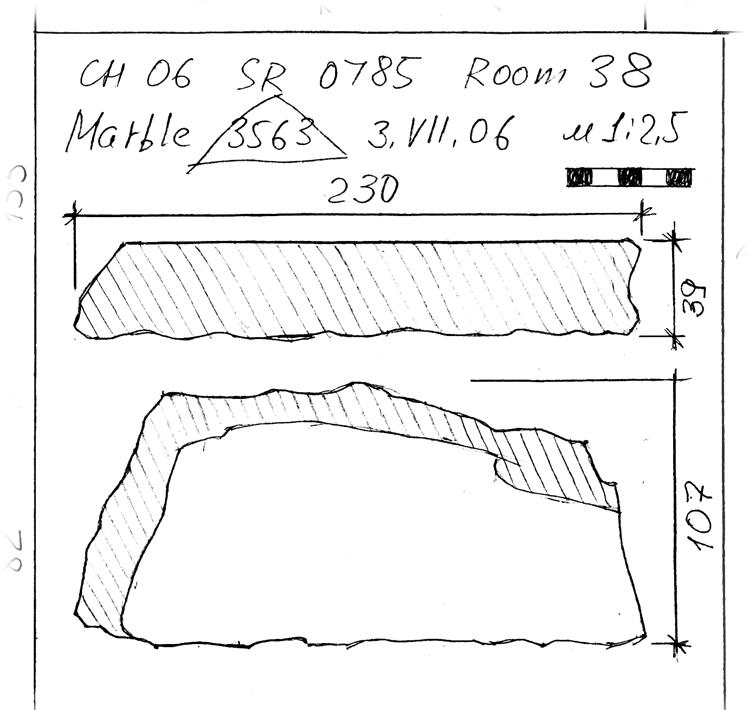 CH 06 SR 0785 Room 38
Marble 3563 3.VII.06 м 1:2,5
230
39
107